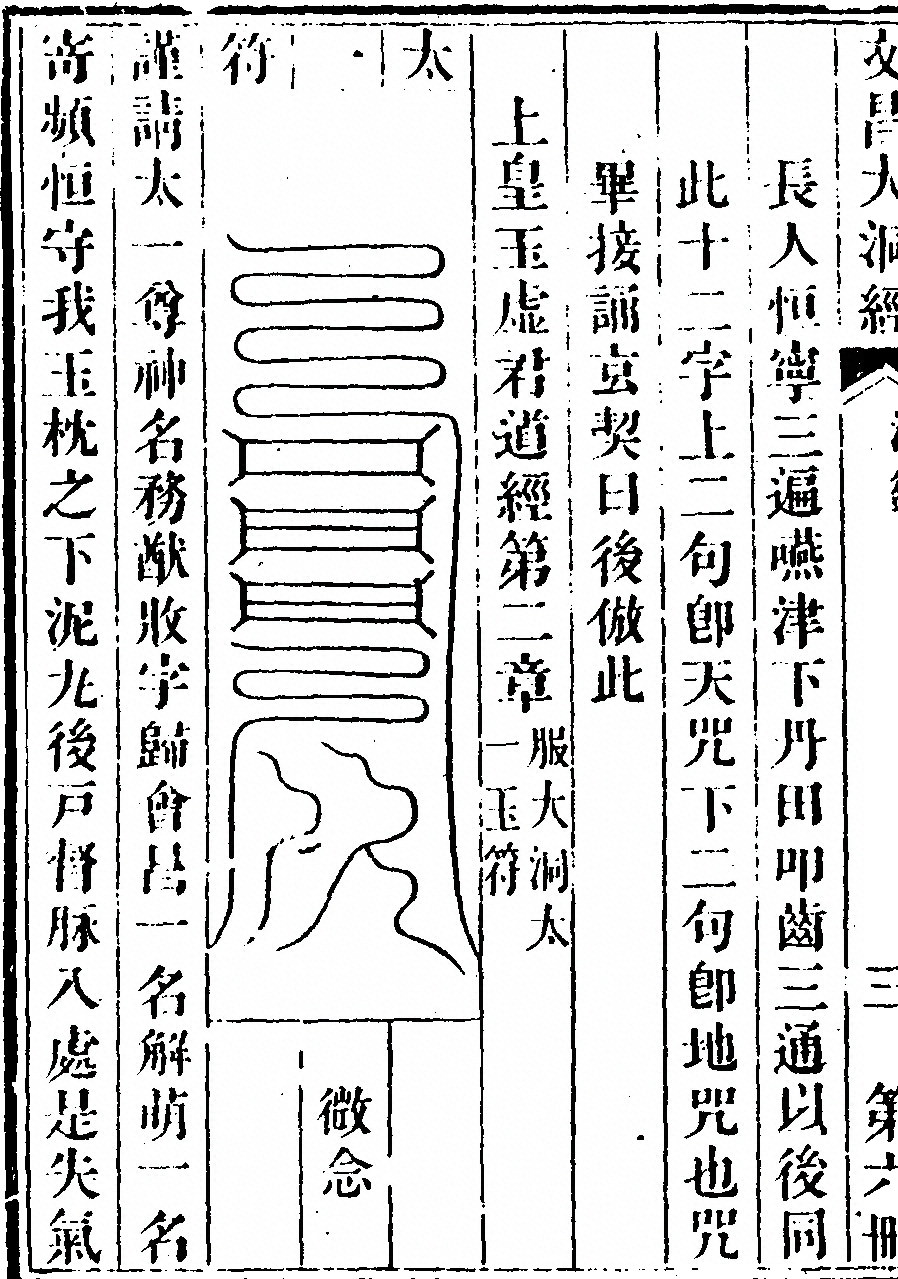 文昌大洞經 三 第六冊
長人恒寧三遍嚥津下丹田叩齒三通以後同
此十二字上二句卽天咒下二句卽地咒也咒
畢接誦玄契曰後倣此
上皇玉虛君道經第二章 服大洞太一玉符
太一符
微念
謹請太一尊神名務猷收字歸會昌一名解萌一名
寄頻恒守我玉枕之下泥九後戸督脉入處是失氣